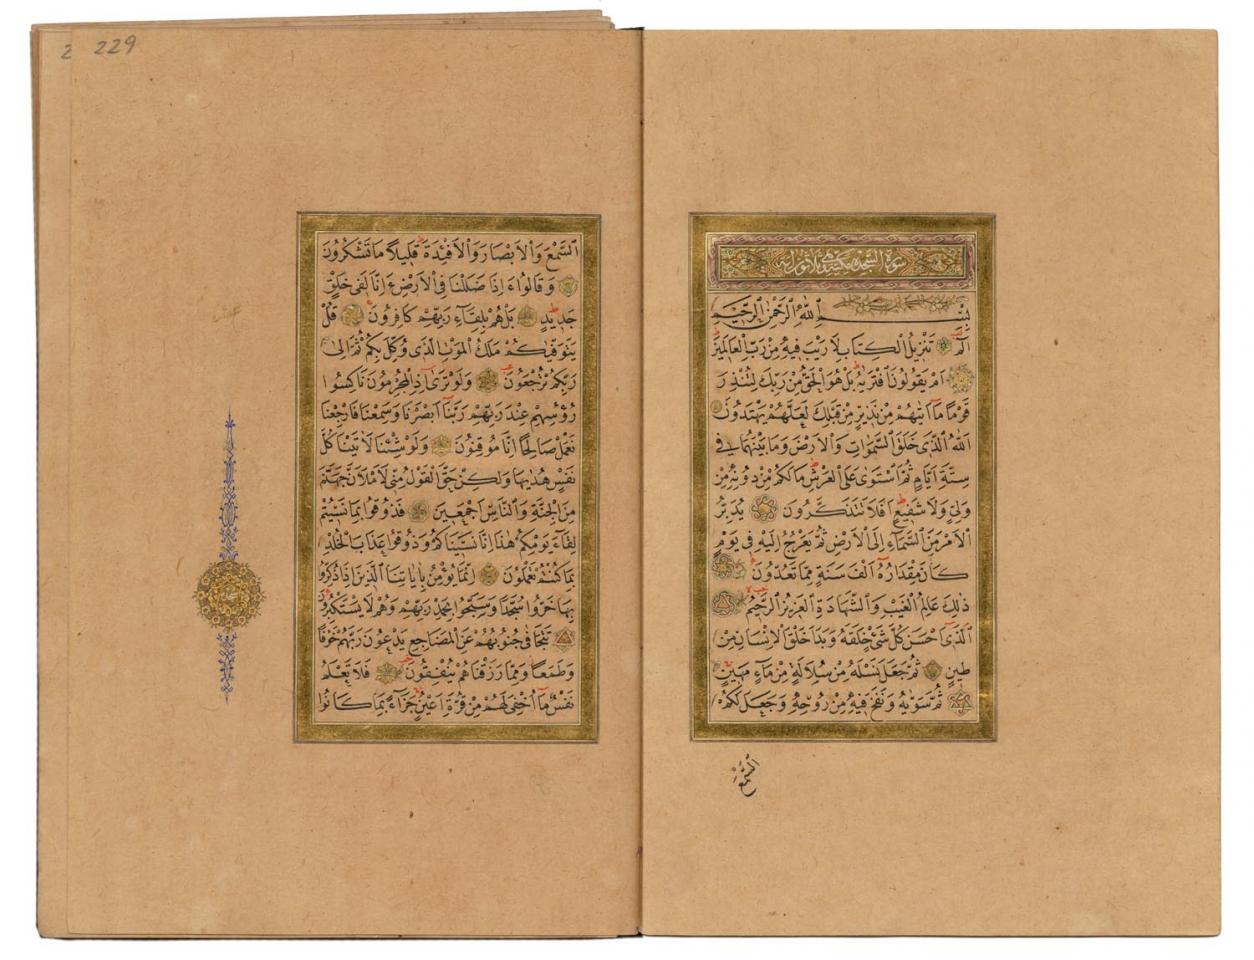 سورة السجدة مكية وهي ثلاثون آية
بِسْمِ اللهِ الرَّحْمٰنِ الرَّحِيمِ
الٓمٓ تَنْزِيلُ الْكِتَابِ لَا رَيْبَ فِيهِ مِنْ رَبِّ الْعَالَمِينَ
اَمْ يَقُولُونَ افْتَرٰيهُ بَلْ هُوَ الْحَقُّ مِنْ رَبِّكَ لِتُنْذِرَ
قَوْمًا مَٓا اَتٰيهُمْ مِنْ نَذِيرٍ مِنْ قَبْلِكَ لَعَلَّهُمْ يَهْتَدُونَ
اَللهُ الَّذِى خَلَقَ السَّمٰوَاتِ وَالْاَرْضَ وَمَا بَيْنَهُمَا فِى
سِتَّةِ اَيَّامٍ ثُمَّ اسْتَوٰى عَلَى الْعَرْشِ مَا لَكُمْ مِنْ دُونِهِ مِنْ
وَلِىٍّ وَلَا شَفِيعٍ اَفَلَا تَتَذَكَّرُونَ يُدَبِّرُ
الْاَمْرَ مِنَ السَّمَٓاءِ اِلَى الْاَرْضِ ثُمَّ يَعْرُجُ اِلَيْهِ فِى يَوْمٍ
كَانَ مِقْدَارُهُٓ اَلْفَ سَنَةٍ مِمَّا تَعُدُّونَ
ذٰلِكَ عَالِمُ الْغَيْبِ وَالشَّهَادَةِ الْعَزِيزُ الرَّحِيمُ
اَلَّذِٓى اَحْسَنَ كُلَّ شَىْءٍ خَلَقَهُ وَبَدَاَ خَلْقَ الْاِنْسَانِ مِنْ
طِينٍ ثُمَّ جَعَلَ نَسْلَهُ مِنْ سُلَالَةٍ مِنْ مَٓاءٍ مَهِينٍ
ثُمَّ سَوّٰيهُ وَنَفَخَ فِيهِ مِنْ رُوحِهِ وَجَعَلَ لَكُمُ
السَّمْعَ
229
السَّمْعَ وَالْاَبْصَارَ وَالْاَفْئِدَةَ قَلِيلًا مَا تَشْكُرُونَ
وَقَالُٓوا ءَاِذَا ضَلَلْنَا فِى الْاَرْضِ ءَاِنَّا لَفِى خَلْقٍ
جَدِيدٍ بَلْ هُمْ بِلِقَٓاءِ رَبِّهِمْ كَافِرُونَ قُلْ
يَتَوَفّٰيكُمْ مَلَكُ الْمَوْتِ الَّذِى وُكِّلَ بِكُمْ ثُمَّ اِلٰى
رَبِّكُمْ تُرْجَعُونَ وَلَوْ تَرٰٓى اِذِ الْمُجْرِمُونَ نَاكِسُوا
رُؤُسِهِمْ عِنْدَ رَبِّهِمْ رَبَّنَٓا اَبْصَرْنَا وَسَمِعْنَا فَارْجِعْنَا
نَعْمَلْ صَالِحًا اِنَّا مُوقِنُونَ وَلَوْ شِئْنَا لَاٰتَيْنَا كُلَّ
نَفْسٍ هُدٰيهَا وَلٰكِنْ حَقَّ الْقَوْلُ مِنِّى لَاَمْلَاَنَّ جَهَنَّمَ
مِنَ الْجِنَّةِ وَالنَّاسِ اَجْمَعِينَ فَذُوقُوا بِمَا نَسِيتُمْ
لِقَٓاءَ يَوْمِكُمْ هٰذَا اِنَّا نَسِينَاكُمْ وَذُوقُوا عَذَابَ الْخُلْدِ
بِمَا كُنْتُمْ تَعْمَلُونَ اِنَّمَا يُؤْمِنُ بِاٰيَاتِنَا الَّذِينَ اِذَا ذُكِّرُوا
بِهَا خَرُّوا سُجَّدًا وَسَبَّحُوا بِحَمْدِ رَبِّهِمْ وَهُمْ لَا يَسْتَكْبِرُونَ
تَتَجَافٰى جُنُوبُهُمْ عَنِ الْمَضَاجِعِ يَدْعُونَ رَبَّهُمْ خَوْفًا
وَطَمَعًا وَمِمَّا رَزَقْنَاهُمْ يُنْفِقُونَ فَلَا تَعْلَمُ
نَفْسٌ مَٓا اُخْفِىَ لَهُمْ مِنْ قُرَّةِ اَعْيُنٍ جَزَٓاءً بِمَا كَانُوا